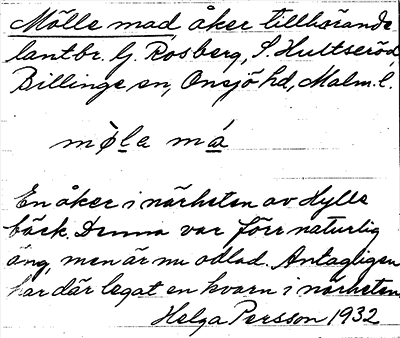 Mölle mad, åker tillhörande
lantbr. G. Rosberg, S. Hultseröd
Billinge sn, Onsjö hd, Malm. l.
mø̀la má
En åker i närheten av Hylle
bäck. Denna var förr naturlig
äng, men är nu odlad. Antagligen
har där legat en kvarn i närheten.
Helga Persson 1932